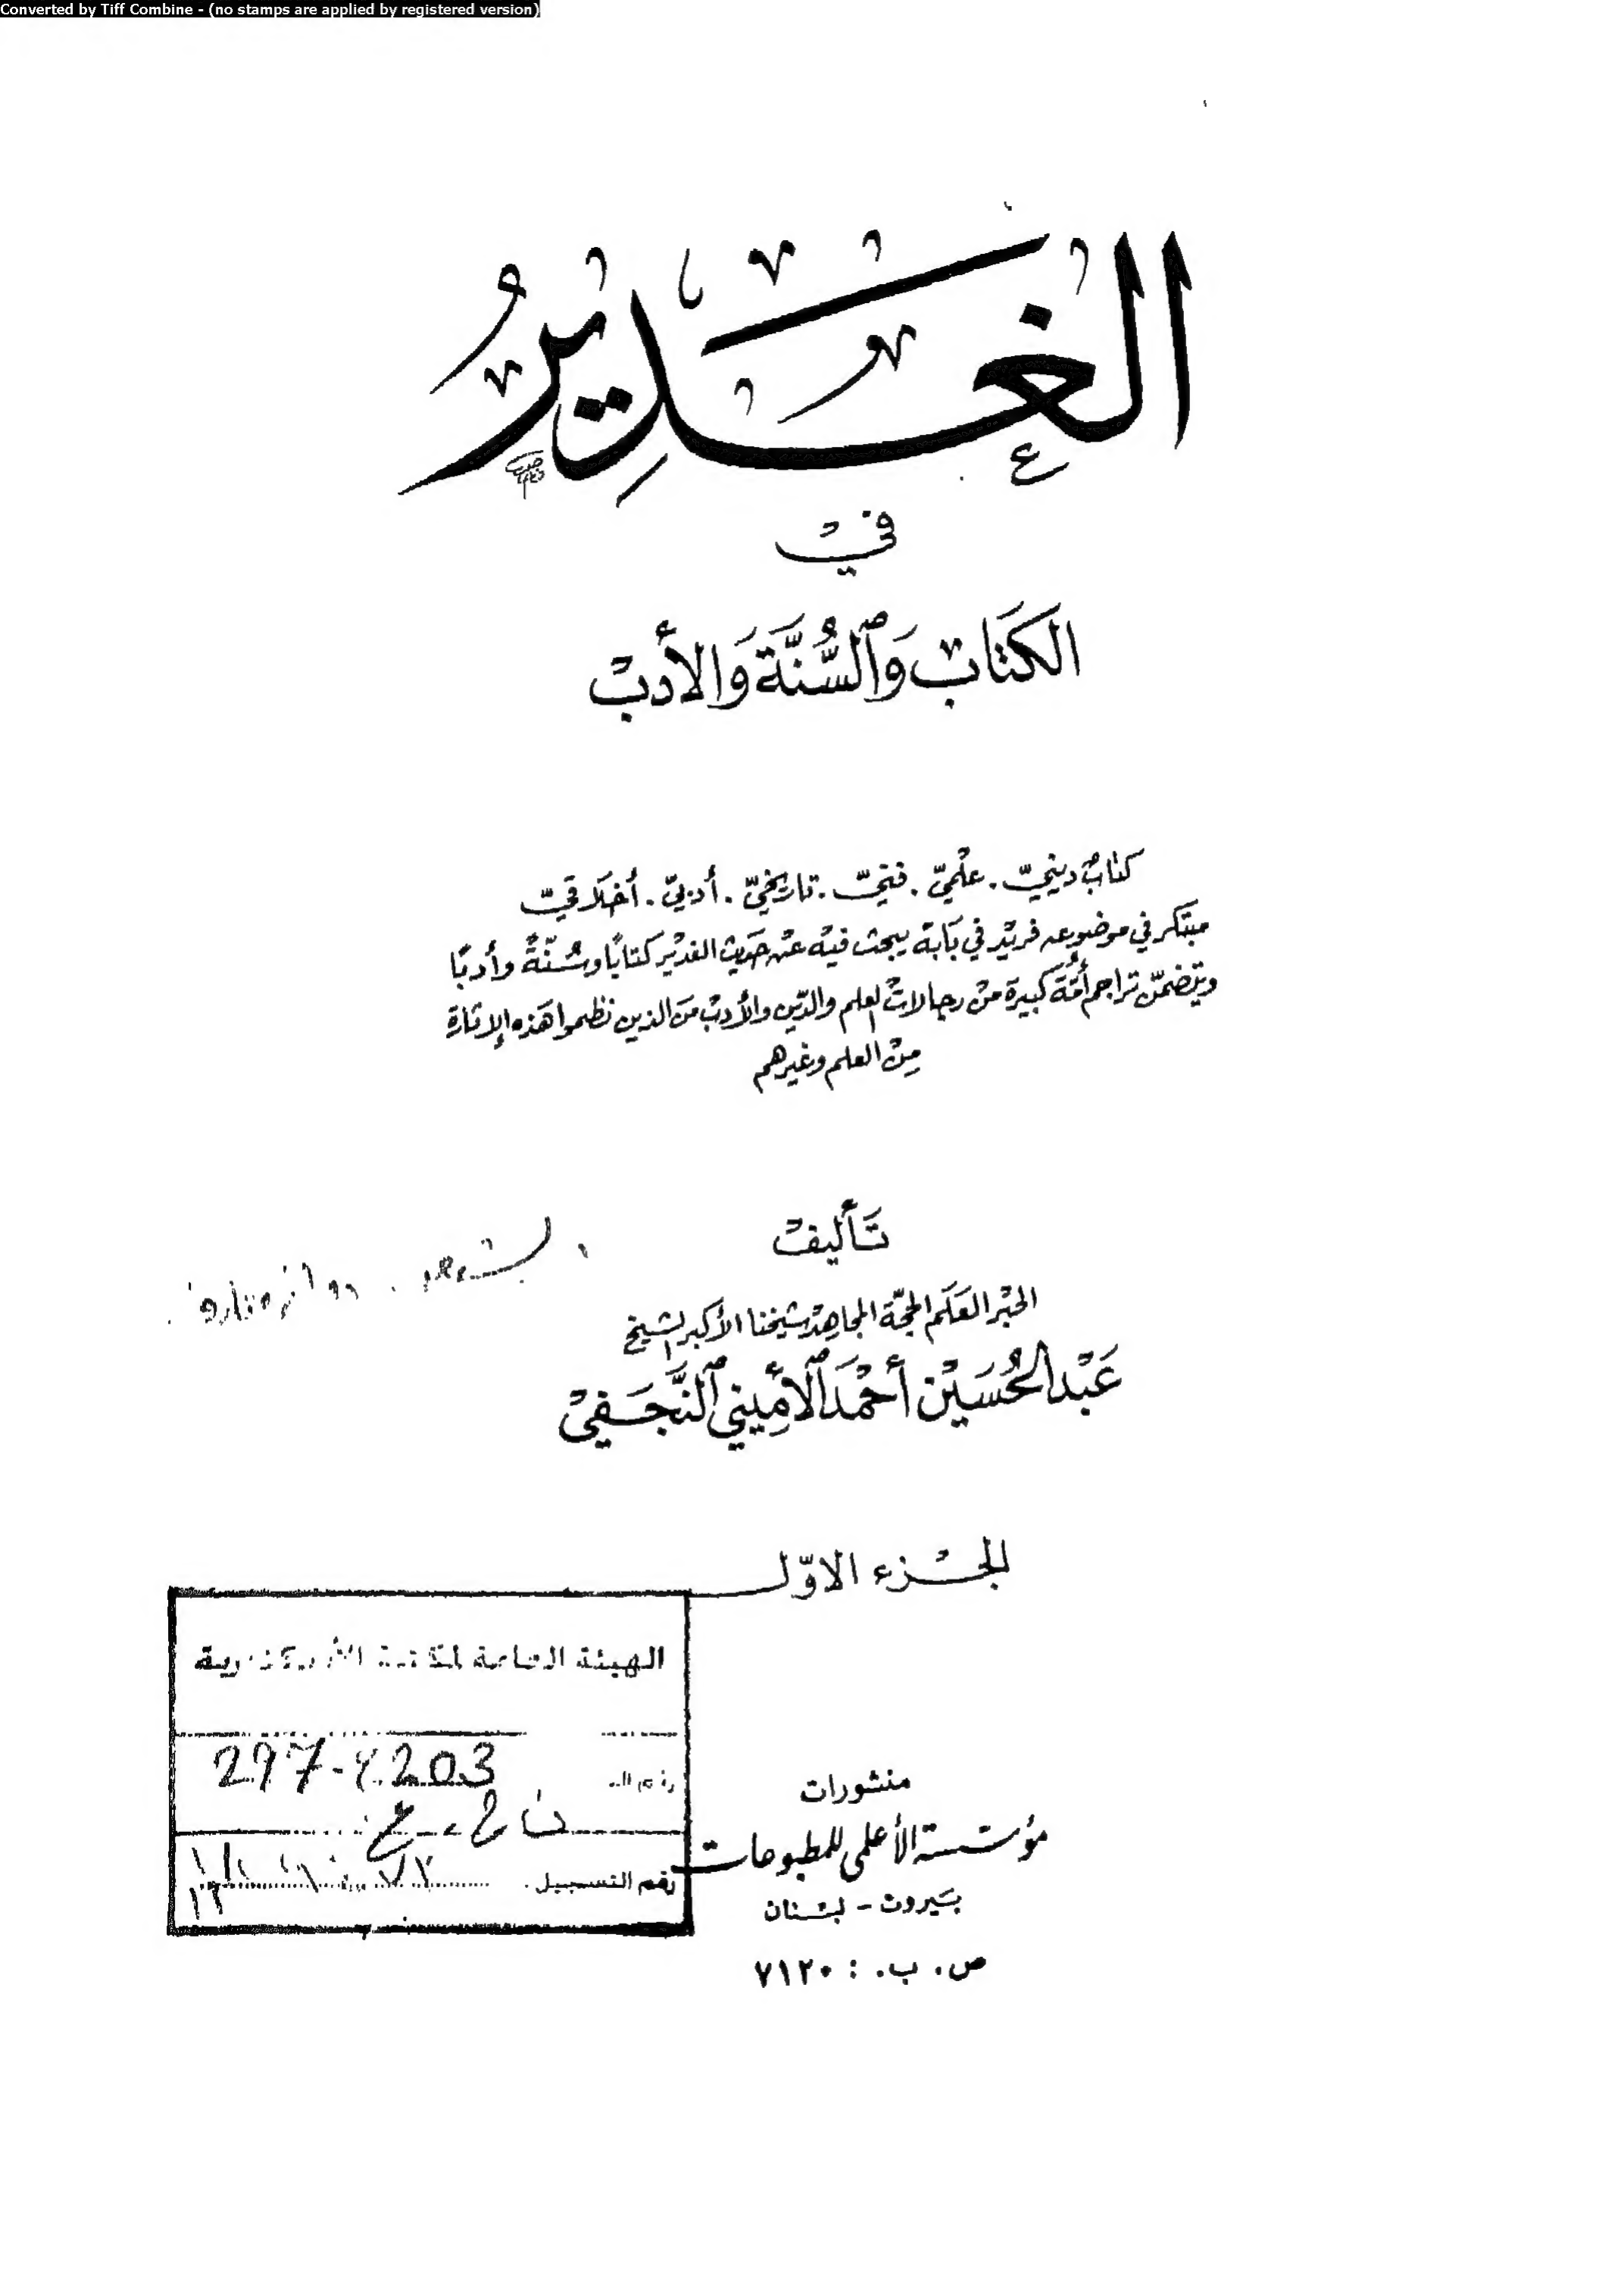 Converted by Tiff Combine - (no stamps are applied by registered version)
الغَدِيرُ
في
الكتَابِ وَٱلسُّنَّة وَالأدبْ
كتابٌ دينيّ . علْميّ . فنيّ . تاريخيّ . أدبيّ . أخلاقيّ
مبتكر في موضوعه فريد في بَابة يبحث فيه عن حديث الغدير كتابًا وسُنّةً وأدبًا
ويتضمّن تراجم أمّة كبيرة من رجالات العلم والدّين والأدب من الذين نظموا هذه الإثارة
من العلم وغيرهم
تَأليف
الحبْر العَلَم الحجّة المجاهد شيخنا الأكبر الشيخ
عَبْد الحُسَيْن أحْمَد ٱلأمِيني ٱلنَّجَفي
الجزء الاوّل
الهيئة العامة لمكتبة الأسكندرية
297.4203
رقم التسجيل
منشورات
مؤسّسة الأعلمي للمطبوعات
بيروت - لبنان
ص . ب . : ٧١٢٠